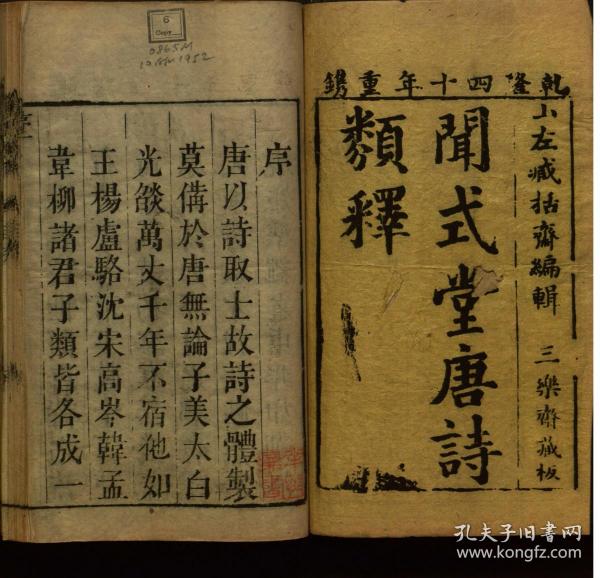 乹隆四十年重鐫
山左臧括齋編輯 三樂齋藏板
聞式堂唐詩
類釋
序
唐以詩取士故詩之體製
莫備於唐無論子美太白
光燄萬丈千年不宿他如
王楊盧駱沈宋高岑韓孟
韋柳諸君子類皆各成一
6
Copy
0865M
1952
孔夫子旧书网
www.kongfz.com